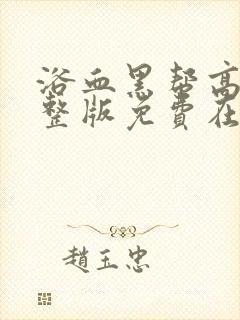 浴血黑帮高
整版免费在
趙玉忠